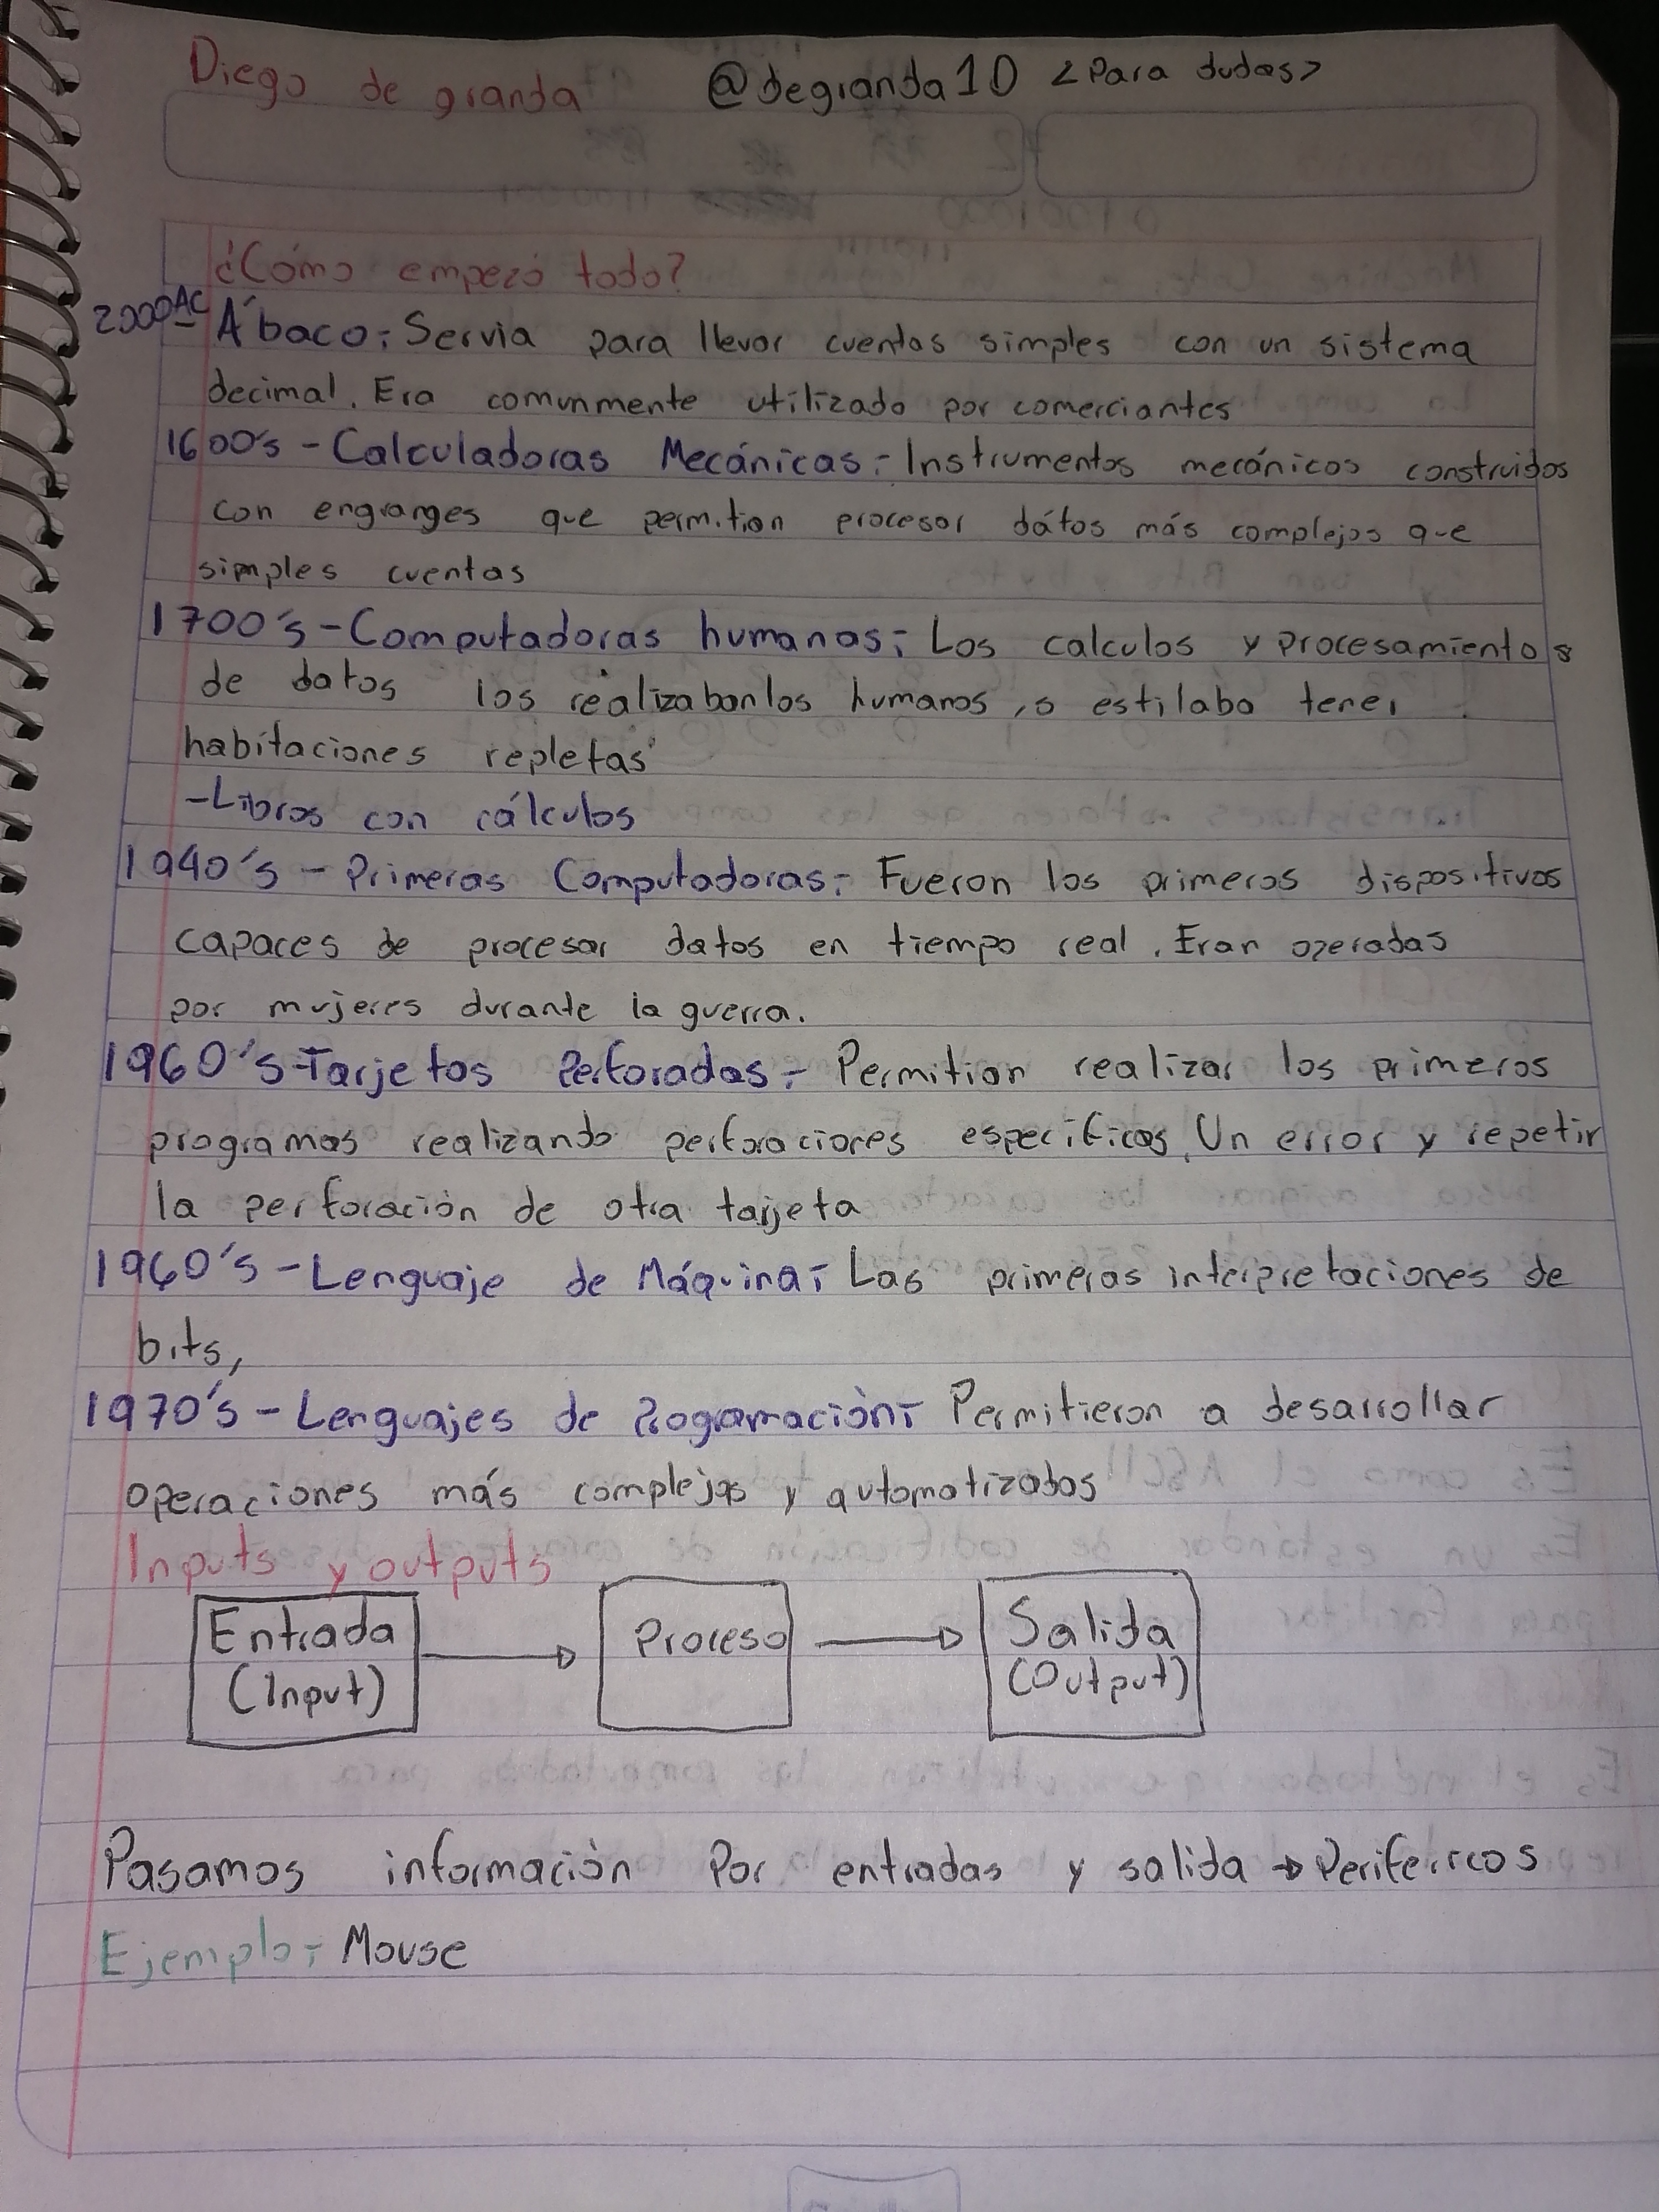 Diego de granda @degranda10 <Para dudas>
¿Cómo empezó todo?
2000AC - Ábaco: Servia para llevar cuentas simples con un sistema
decimal. Era comunmente utilizado por comerciantes
1600's - Calculadoras Mecánicas: Instrumentos mecánicos construidos
con engranges que permitian procesar dátos más complejos que
simples cuentas
1700's - Computadoras humanas: Los calculos y procesamientos
de datos los realizaban los humanos, s estilaba tener
habitaciones repletas
- Libros con cálculos
1940's - Primeras Computadoras: Fueron los primeros dispositivos
capaces de procesar datos en tiempo real. Eran operadas
por mujeres durante la guerra.
1960's - Tarjetas Perforadas: Permitian realizar los primeros
programas realizando perforaciones especificas, Un error y repetir
la perforación de otra tarjeta
1960's - Lenguaje de Máquina: Las primeras interpretaciones de
bits,
1970's - Lenguajes de Programación: Permitieron a desarrollar
operaciones más complejas y automatizadas
Inputs y outputs
Entrada Proceso Salida
(Input) (Output)
Pasamos información Por entradas y salida → Perifericos
Ejemplo: Mouse